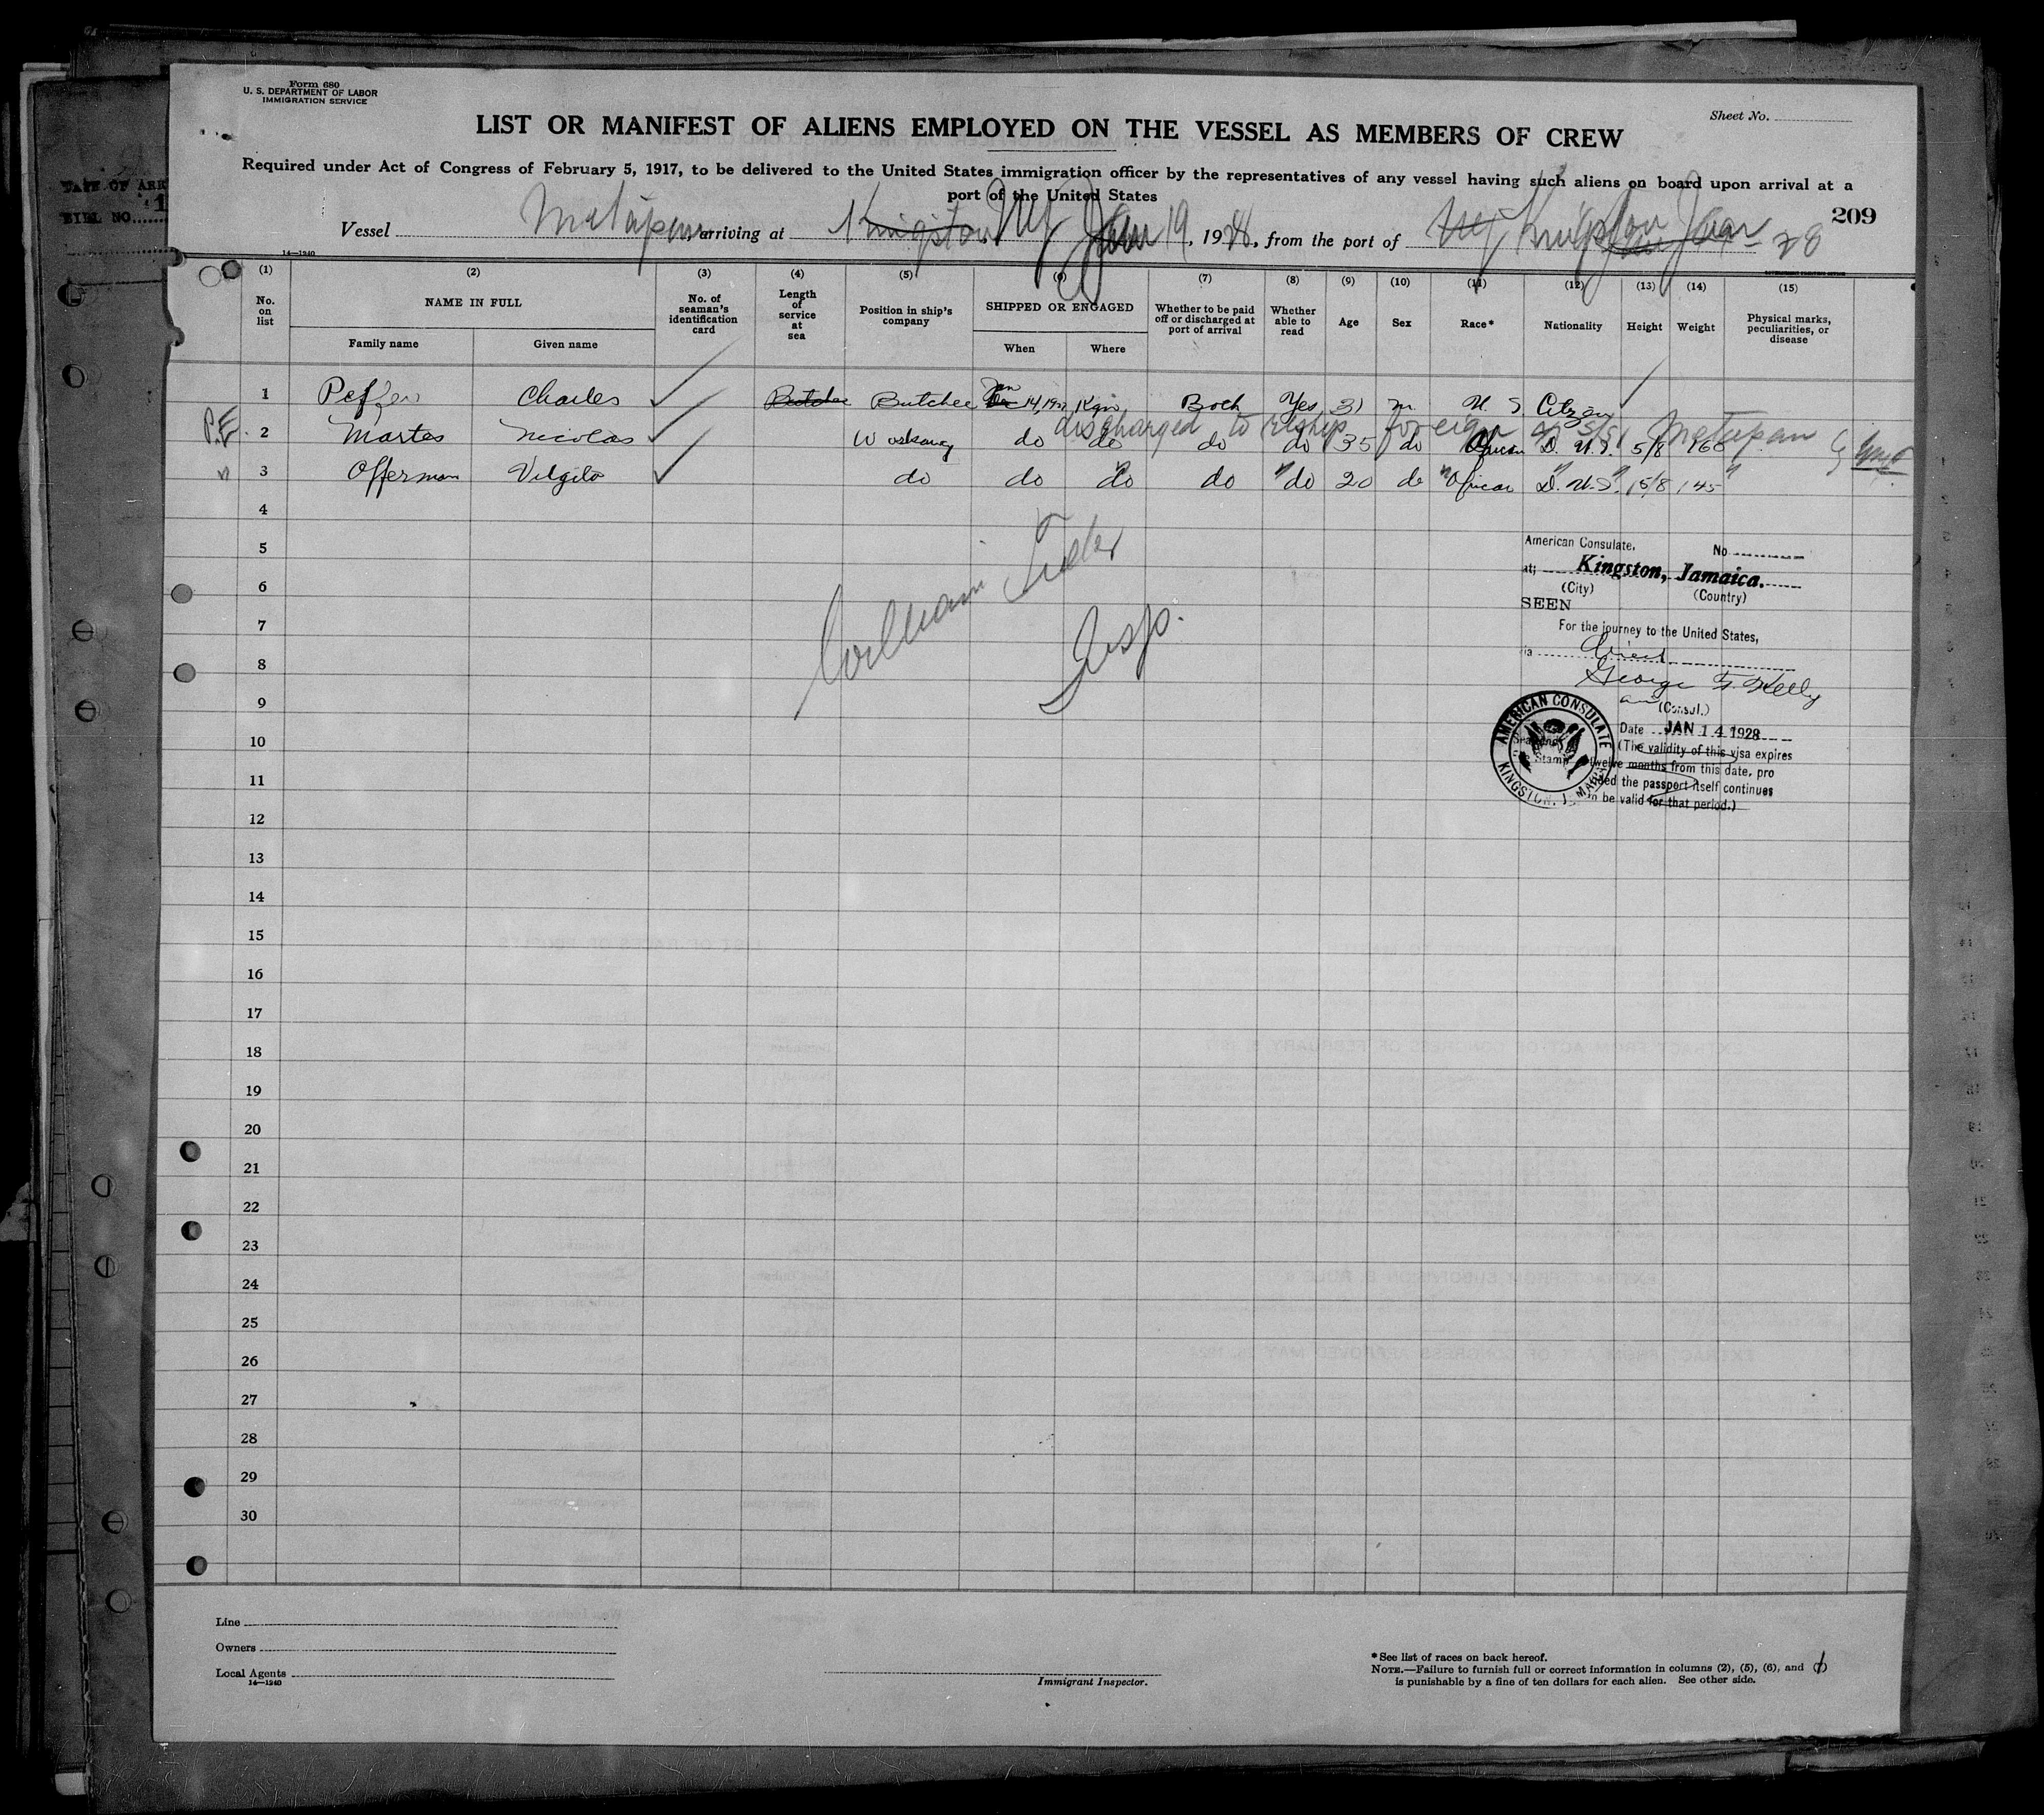 Form 680
U. S. DEPARTMENT OF LABOR
IMMIGRATION SERVICE
Sheet No.
LIST OR MANIFEST OF ALIENS EMPLOYED ON THE VESSEL AS MEMBERS OF CREW
Required under Act of Congress of February 5, 1917, to be delivered to the United States immigration officer by the representatives of any vessel having such aliens on board upon arrival at a
port of the United States
209
Vessel Metapan, arriving at Kingston NY Jan 19, 1928, from the port of NY Kingston Jan
14—1240
(1) (2) (3) (4) (5) (6) (7) (8) (9) (10) (11) (12) (13) (14) (15)
No. on list NAME IN FULL No. of seaman's identification card Length of service at sea Position in ship's company SHIPPED OR ENGAGED Whether to be paid off or discharged at port of arrival Whether able to read Age Sex Race* Nationality Height Weight Physical marks, peculiarities, or disease
Family name Given name When Where
1 Charles Butcher Butcher Jan 14, 192 Kgn Both Yes 31 m. U. S Citzen
discharged to reship foreign s/s Metapan
P.E. 2 Martes Nicolas do do do do 35 do African D. U. S. 5/8 160
3 Offerman Vilgito do do do do do 20 do African D. U. S. 5/8 145
4
5
6
7
8
9
10
11
12
13
14
15
16
17
18
19
20
21
22
23
24
25
26
27
28
29
30
William
Insp.
American Consulate, No
at; Kingston, Jamaica.
(City) (Country)
SEEN
For the journey to the United States,
ia direct
George F. Kelly
(Consul.)
Date JAN 14 1928
(The validity of this visa expires
twelve months from this date, pro
ided the passport itself continues
to be valid for that period.)
AMERICAN CONSULATE
KINGSTON, JAMAICA
Stamp
Line
Owners
Local Agents
14—1240
Immigrant Inspector.
*See list of races on back hereof.
NOTE.—Failure to furnish full or correct information in columns (2), (5), (6), and (7)
is punishable by a fine of ten dollars for each alien. See other side.